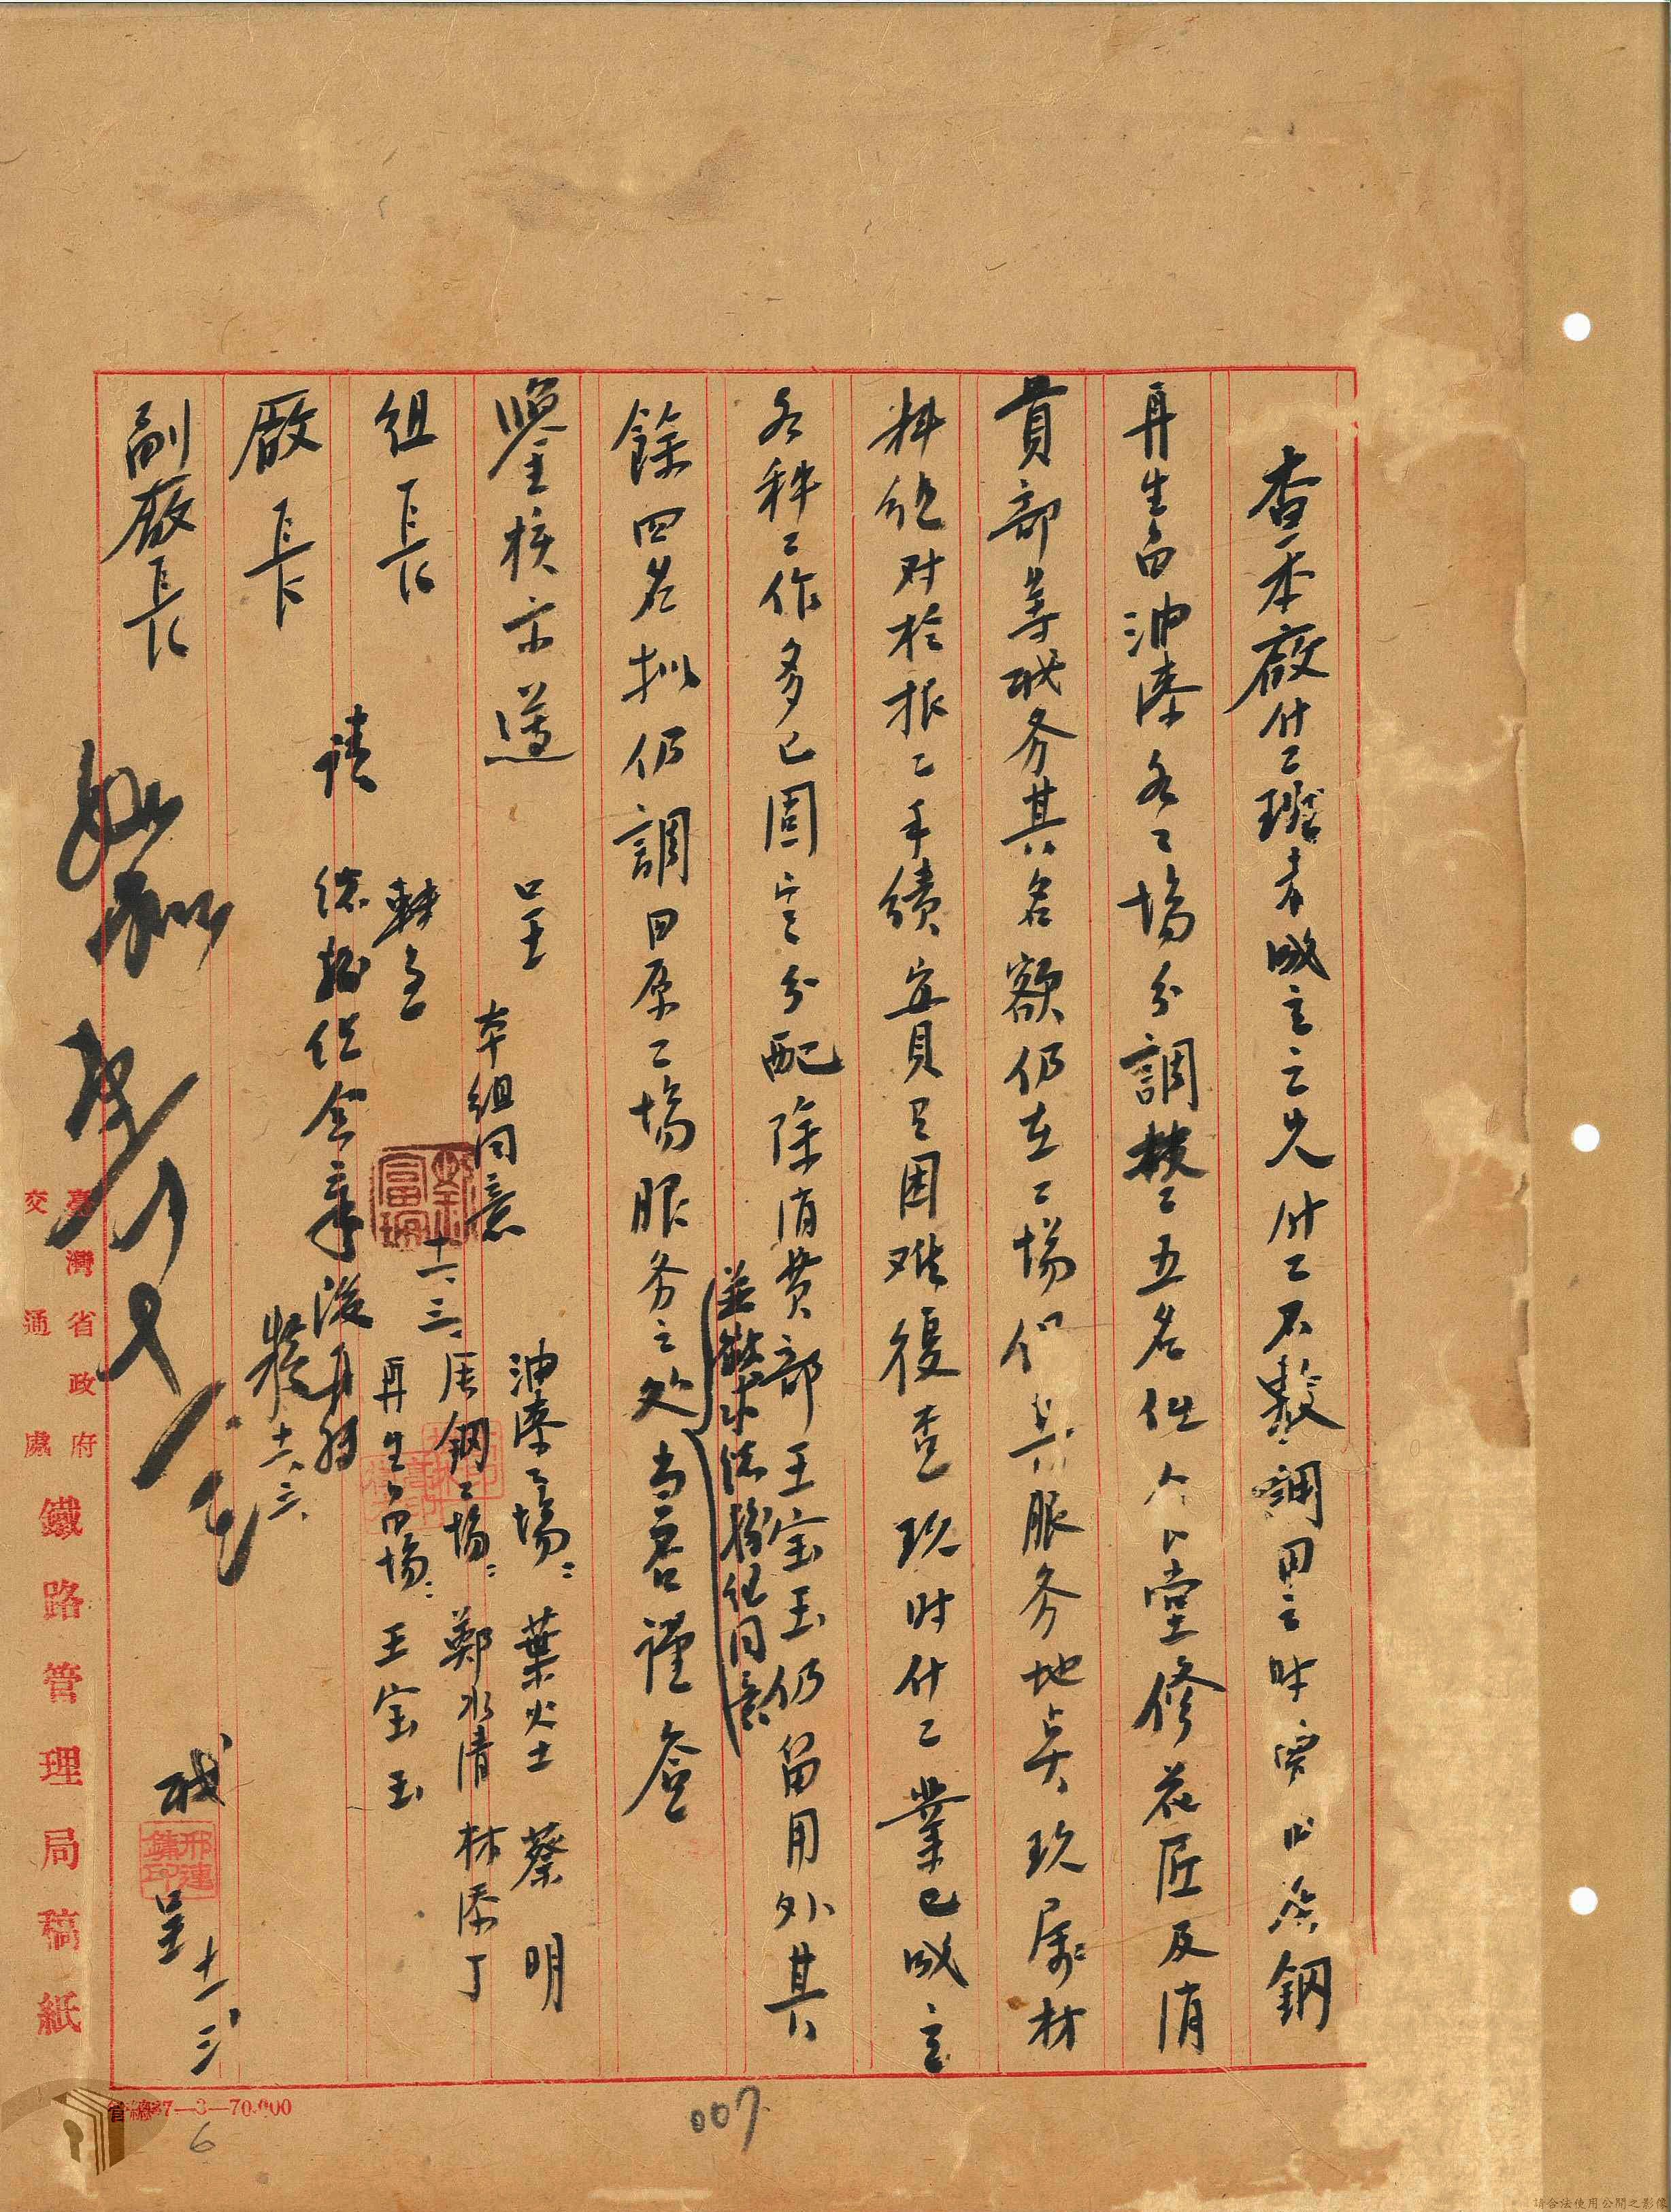 查本廠什工班未成立之先什工不敷調用之時實由餘鋼
再生各油漆各工場分調技工五名任人人堂修花匠及消
費部等職务其名額仍在工場但其服务地点玖屬材
料組对於报工手續实具困难複查玖时什工業已成立
各种工作多已固定分配除消費部王宝玉仍留用外其
餘四名拟仍調回原工場服务之处
並敬求總務組同意
当否謹簽
鑒核示遵 呈
組長
廠長
副廠長
油漆工場：葉火土 蔡明
压鋼工場：鄭水清 林添丁
再生工場：王宝玉
本組同意
十一、三、
請總務組会章後再核
十一、三、
如擬
職
邢連鏞印
呈十一、三
臺灣省政府
交通處
鐵路管理局稿紙
37—3—70.000
007
6
請合法使用公開之影像